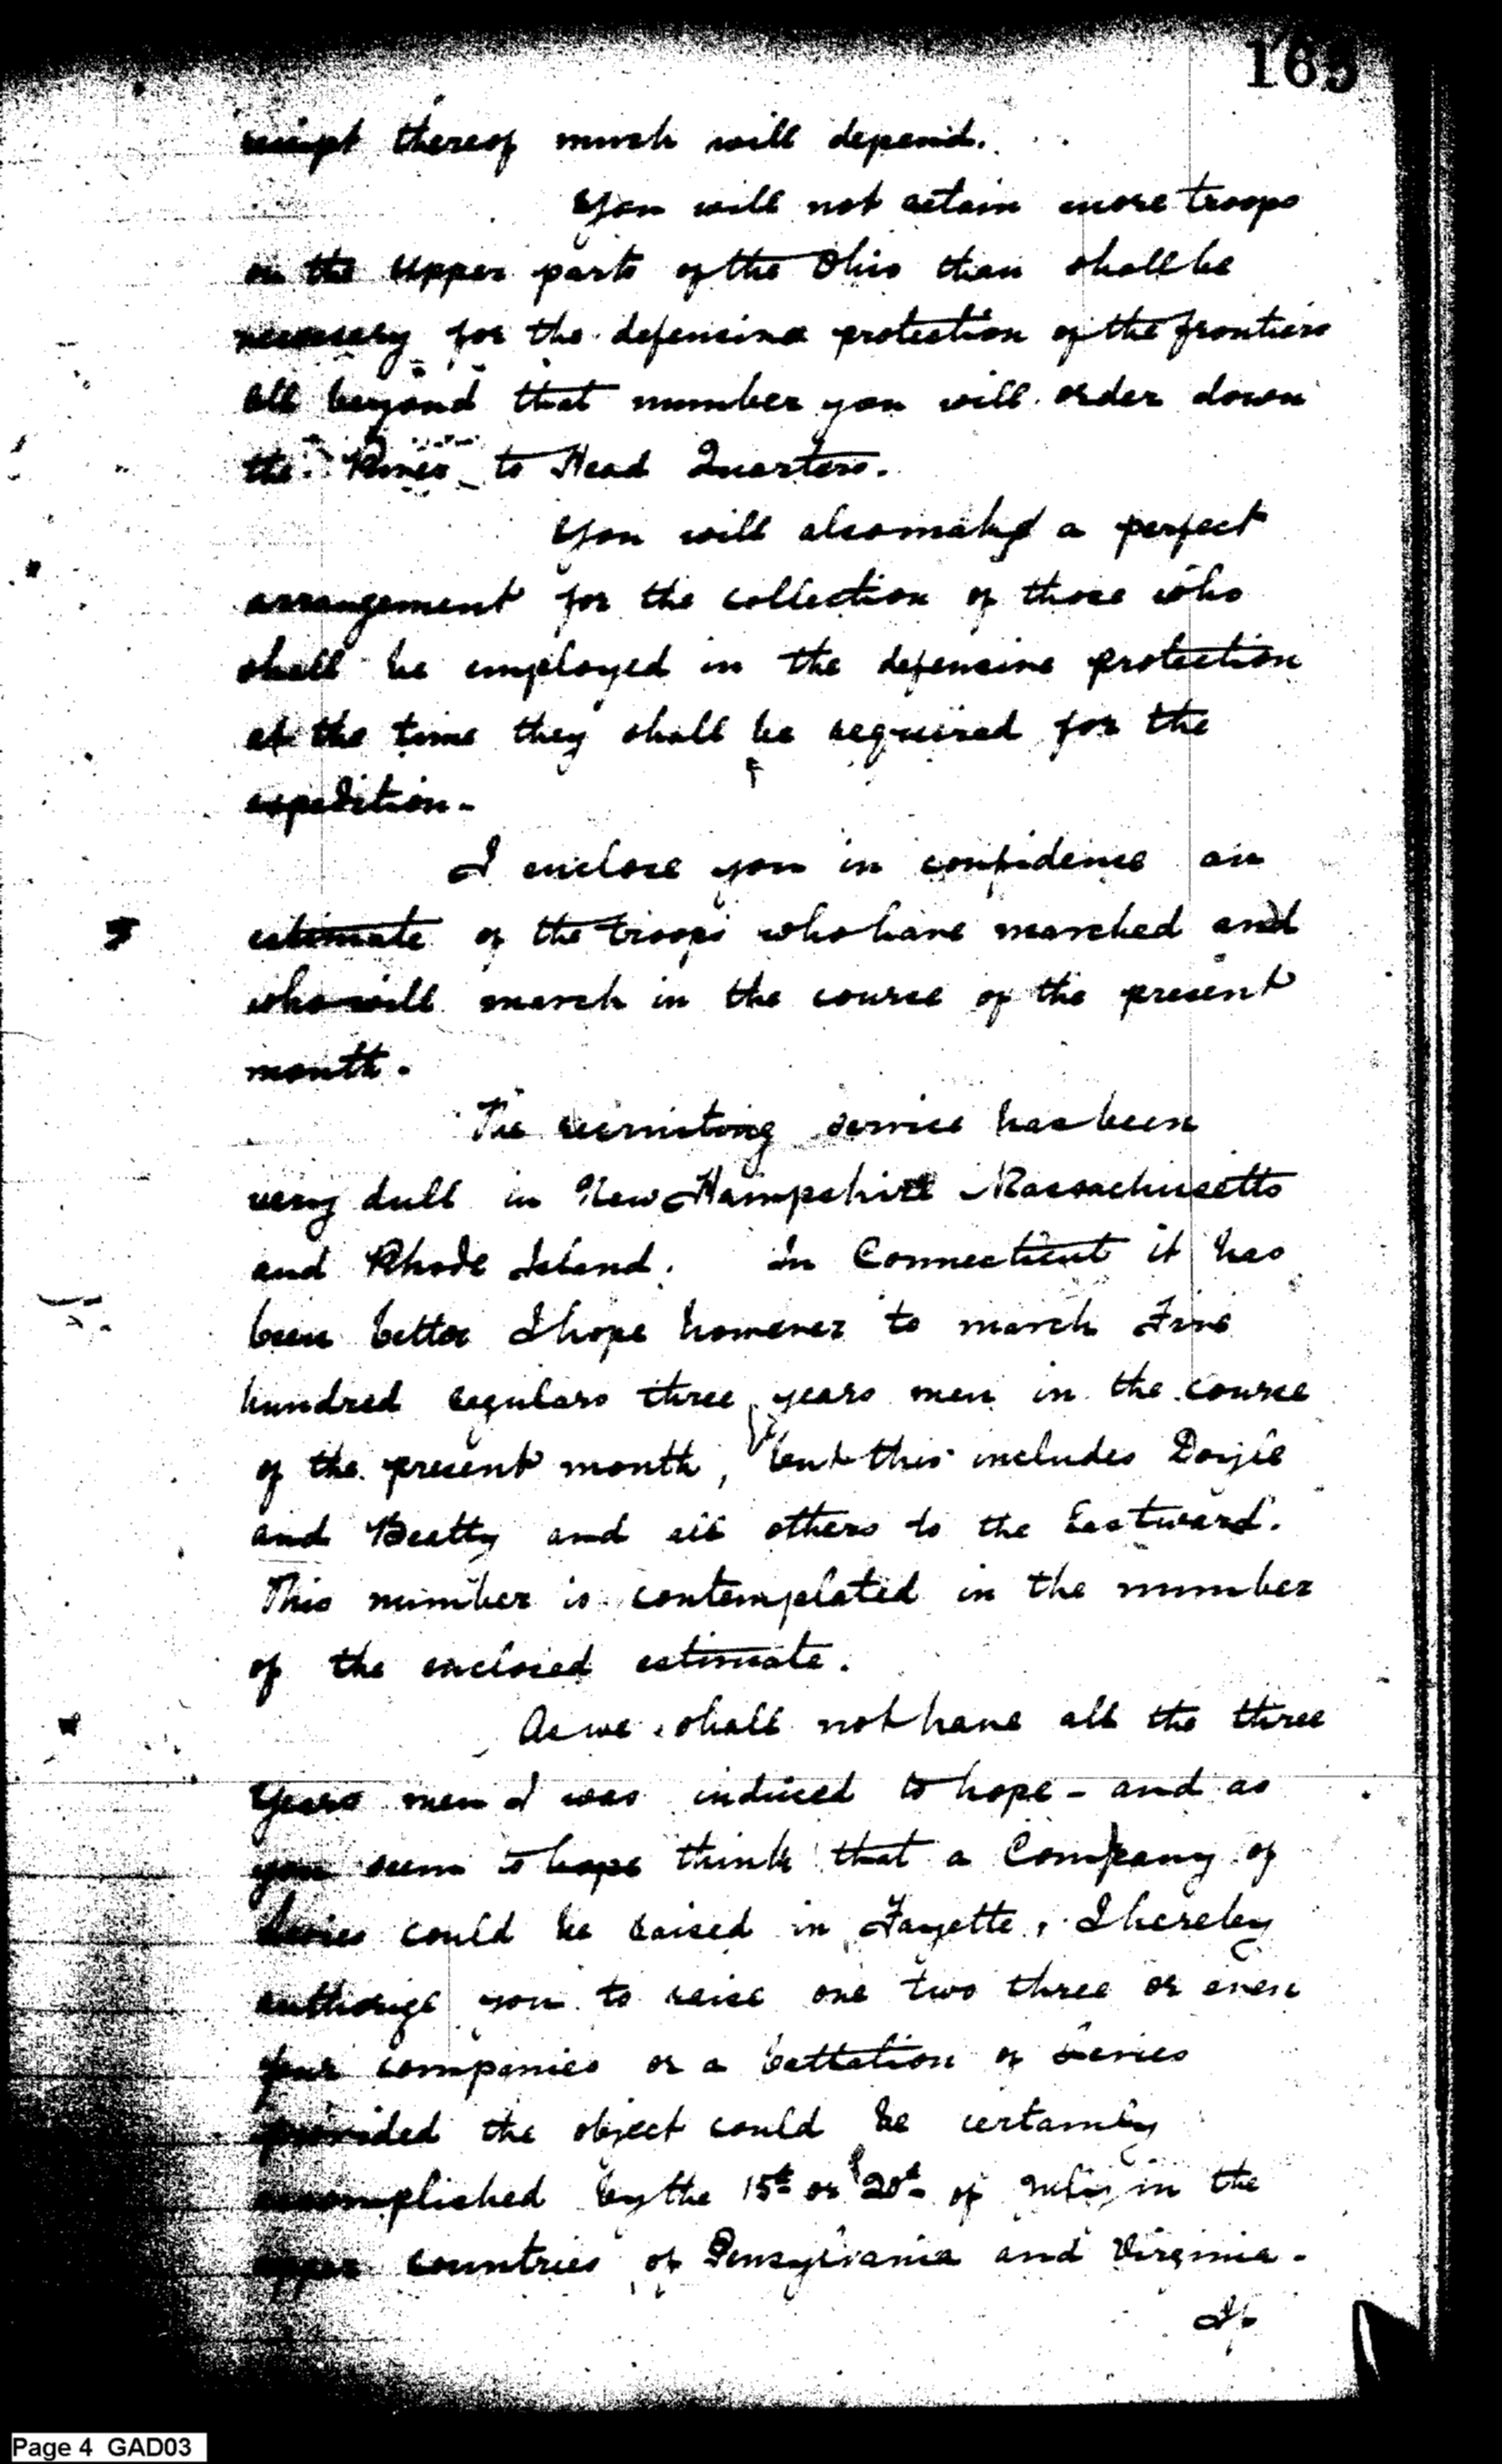 165
receipt thereof much will depend.
You will not retain more troops
on the Upper parts of the Ohio than shall be
necessary for the defensive protection of the frontiers
all beyond that number you will order down
the River to Head Quarters.
You will also make a perfect
arrangement for the collection of those who
shall be employed in the defensive protection
at the time they shall be required for the
expedition -
I enclose you in confidence an
estimate of the troops who have marched and
who will march in the course of the present
month.
The recruiting service has been
very dull in New Hampshire Massachusetts
and Rhode Island. In Connecticut it has
been better I hope however to march Five
hundred regulars three years men in the course
of the present month, but this includes Doyle
and Beatty and all others to the Eastward.
This number is contemplated in the number
of the enclosed estimate.
As we shall not have all the three
years men I was induced to hope - and as
you seem to hope think that a Company of
levies could be raised in Fayette, I hereby
authorize you to raise one two three or even
four companies or a battalion of Levies
provided the object could be certainly
accomplished by the 15th or 20th of July in the
upper countries of Pensylvania and Virginia -
If
Page 4 GAD03